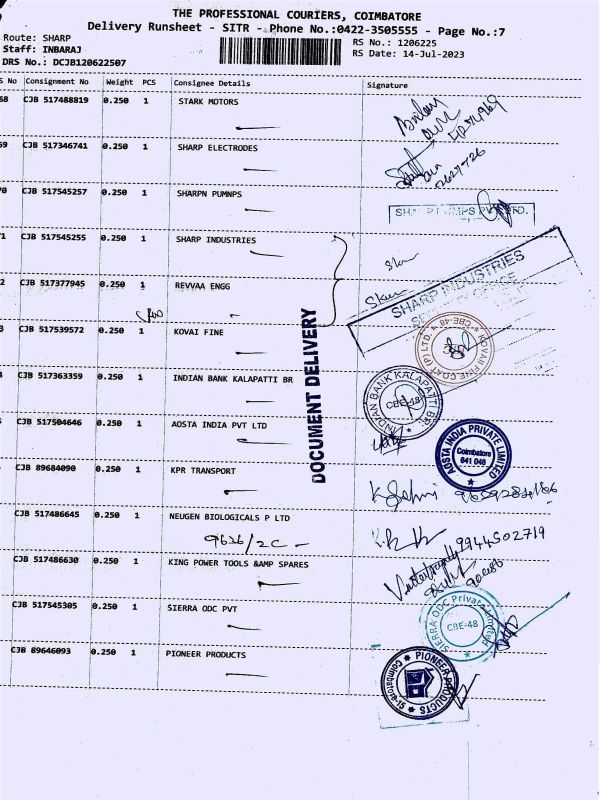 THE PROFESSIONAL COURIERS, COIMBATORE
Delivery Runsheet - SITR - Phone No.:0422-3505555 - Page No.:7
Route: SHARP
RS No.: 1206225
Staff: INBARAJ
RS Date: 14-Jul-2023
DRS No.: DCJB120622507
S No Consignment No Weight PCS Consignee Details Signature
68 CJB 517488819 0.250 1 STARK MOTORS
69 CJB 517346741 0.250 1 SHARP ELECTRODES
2627726
70 CJB 517545257 0.250 1 SHARPN PUMNPS
SHARP PUMPS PVT LTD.
71 CJB 517545255 0.250 1 SHARP INDUSTRIES
SHARP INDUSTRIES
2 CJB 517377945 0.250 1 REVVAA ENGG
3 CJB 517539572 0.250 1 KOVAI FINE
KOVAI FINE COAT (P) LTD. CBE-48
DOCUMENT DELIVERY
CJB 517363359 0.250 1 INDIAN BANK KALAPATTI BR
INDIAN BANK KALAPATTI BR. CBE-48
CJB 517504646 0.250 1 AOSTA INDIA PVT LTD
AOSTA INDIA PRIVATE LIMITED Coimbatore 641 048
CJB 89684090 0.250 1 KPR TRANSPORT
CJB 517486645 0.250 1 NEUGEN BIOLOGICALS P LTD
9626/2C -
9944502719
CJB 517486630 0.250 1 KING POWER TOOLS &AMP SPARES
CJB 517545305 0.250 1 SIERRA ODC PVT
SIERRA ODC Private Limited CBE-48
CJB 89646093 0.250 1 PIONEER PRODUCTS
PIONEER PRODUCTS Coimbatore-15